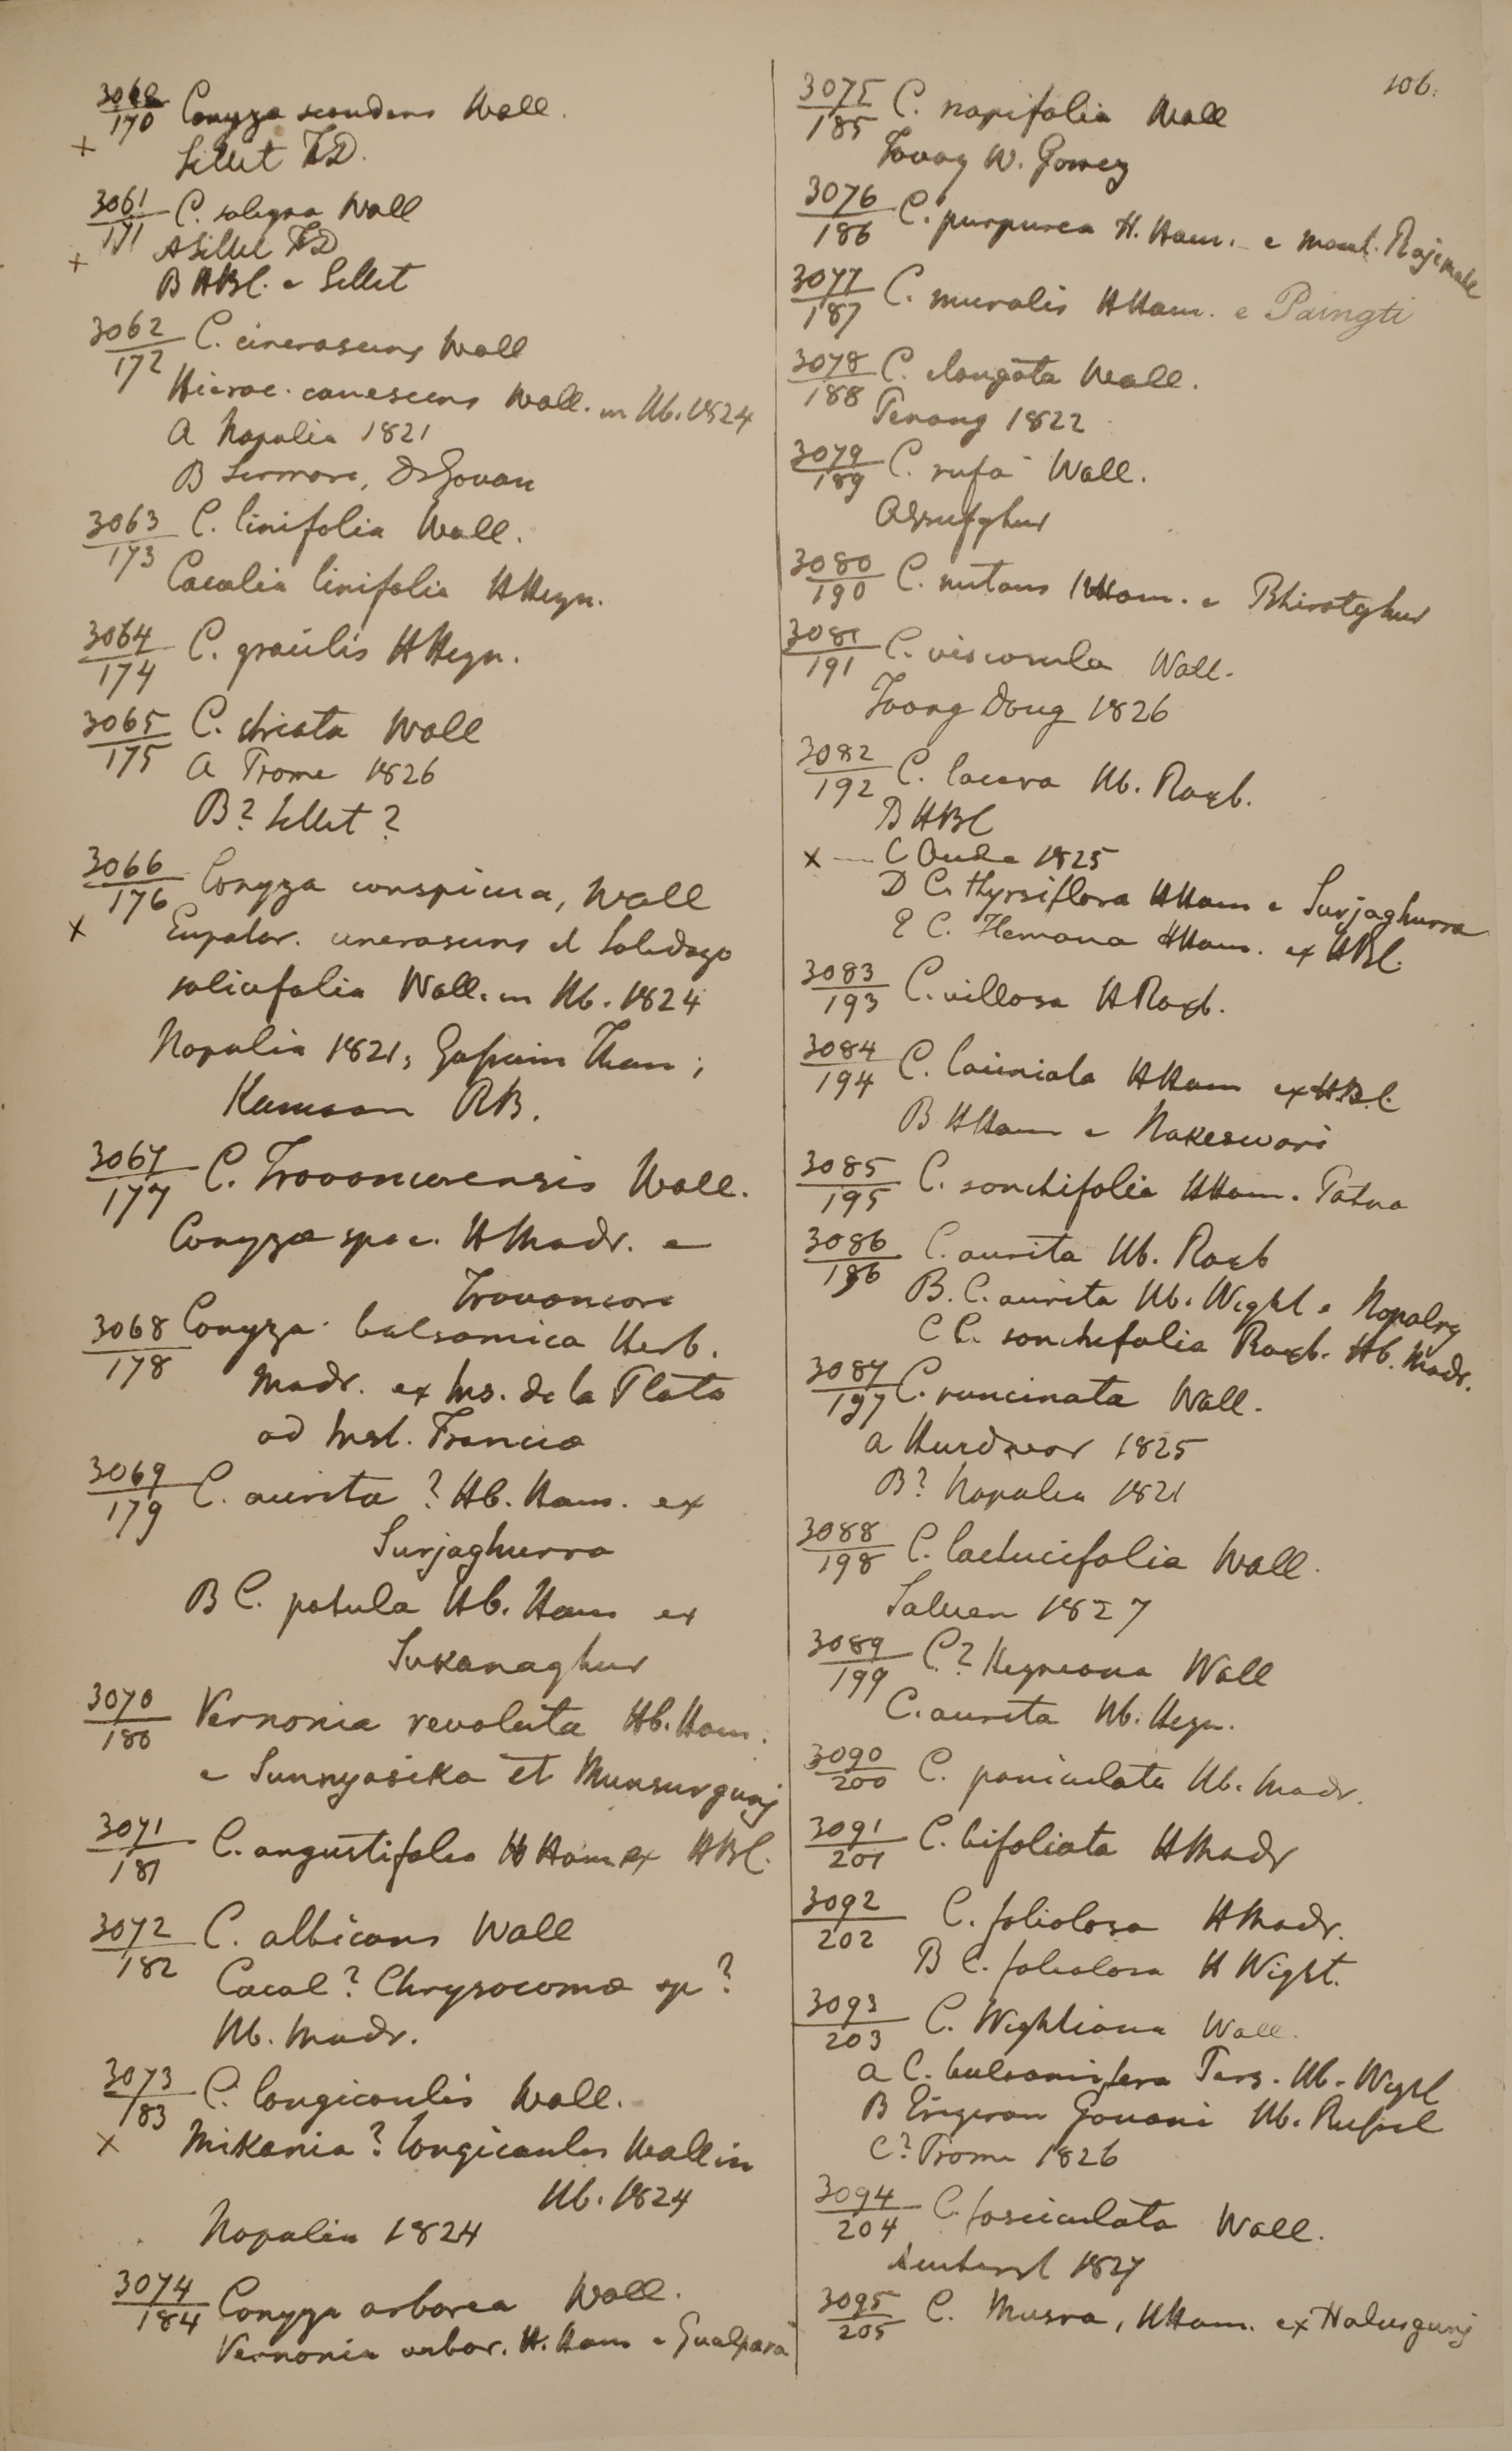 106.
3060/170 Conyza scandens Wall.
x Sillet FD.
3061/171 C. saligna Wall
x A Sillet FD
B HBC. e Sillet
3062/172 C. cinerascens Wall
Hierac. canescens Wall. in Hb. 1824
A Napalia 1821
B Sirmore, Dr Govan
3063/173 C. linifolia Wall.
Cacalia linifolia HHeyn.
3064/174 C. gracilis HHeyn.
3065/175 C. striata Wall
A Prome 1826
B? Sillet?
3066/176 Conyza conspicua, Wall
x Eupator. cinerascens et Solidago
salicifolia Wall. in Hb. 1824
Napalia 1821, Gossain Than;
Kamaon RB.
3067/177 C. Travancorensis Wall.
Conyzæ spec. HMadr. e
Travancore
3068/178 Conyza balsamica Herb.
Madr. ex Ins. de la Plata
ad Insl. Franciæ
3069/179 C. aurita? Hb. Ham. ex
Surjaghurra
B C. patula Hb. Ham ex
Sukanaghur
3070/180 Vernonia revoluta Hb. Ham.
e Sunnyasika et Munsurgunj
3071/181 C. angustifolia HHam ex HBC.
3072/182 C. albicans Wall
Cacal? Chrysocomæ sp?
Hb. Madr.
3073/183 C. longicaulis Wall.
x Mikania? longicaulis Wall in
Hb. 1824
Napalia 1824
3074/184 Conyza arborea Wall.
Vernonia arbor. H. Ham e Gualpara
3075/185 C. napifolia Wall
Tavoy W. Gomez
3076/186 C. purpurea H. Ham. e mont. Rajemahl
3077/187 C. muralis HHam. e Paingti
3078/188 C. elongata Wall.
Penang 1822
3079/189 C. rufa Wall.
Assufghur
3080/190 C. nutans HHam. e Bhirotghur
3081/191 C. viscosula Wall.
Toong Dong 1826
3082/192 C. lacera Hb. Roxb.
B HBC
x — C Oude 1825
D C. thyrsiflora HHam e Surjaghurra
E C. Hemana HHam. ex HBC.
3083/193 C. villosa HRoxb.
3084/194 C. laciniata HHam ex H.B.C.
B HHam e Nakeswari
3085/195 C. sonchifolia HHam. Patna
3086/196 C. aurita Hb. Roxb
B. C. aurita Hb. Wight e Nopalry
C C. sonchifolia Roxb. Hb. Madr.
3087/197 C. runcinata Wall.
a Hurdwar 1825
B? Napalia 1821
3088/198 C. lactucifolia Wall.
Saluen 1827
3089/199 C.? Heyneana Wall
C. aurita Hb. Heyn.
3090/200 C. paniculata Hb. Madr.
3091/201 C. bifoliata HMadr
3092/202 C. foliolosa HMadr.
B C. foliolosa H Wight.
3093/203 C. Wightiana Wall.
a C. balsamifera Pers. Hb. Wight
B Erigeron Gouani Hb. Russel
C? Prome 1826
3094/204 C. fasciculata Wall.
Amherst 1827
3095/205 C. Musra, HHam. ex Halurgunj